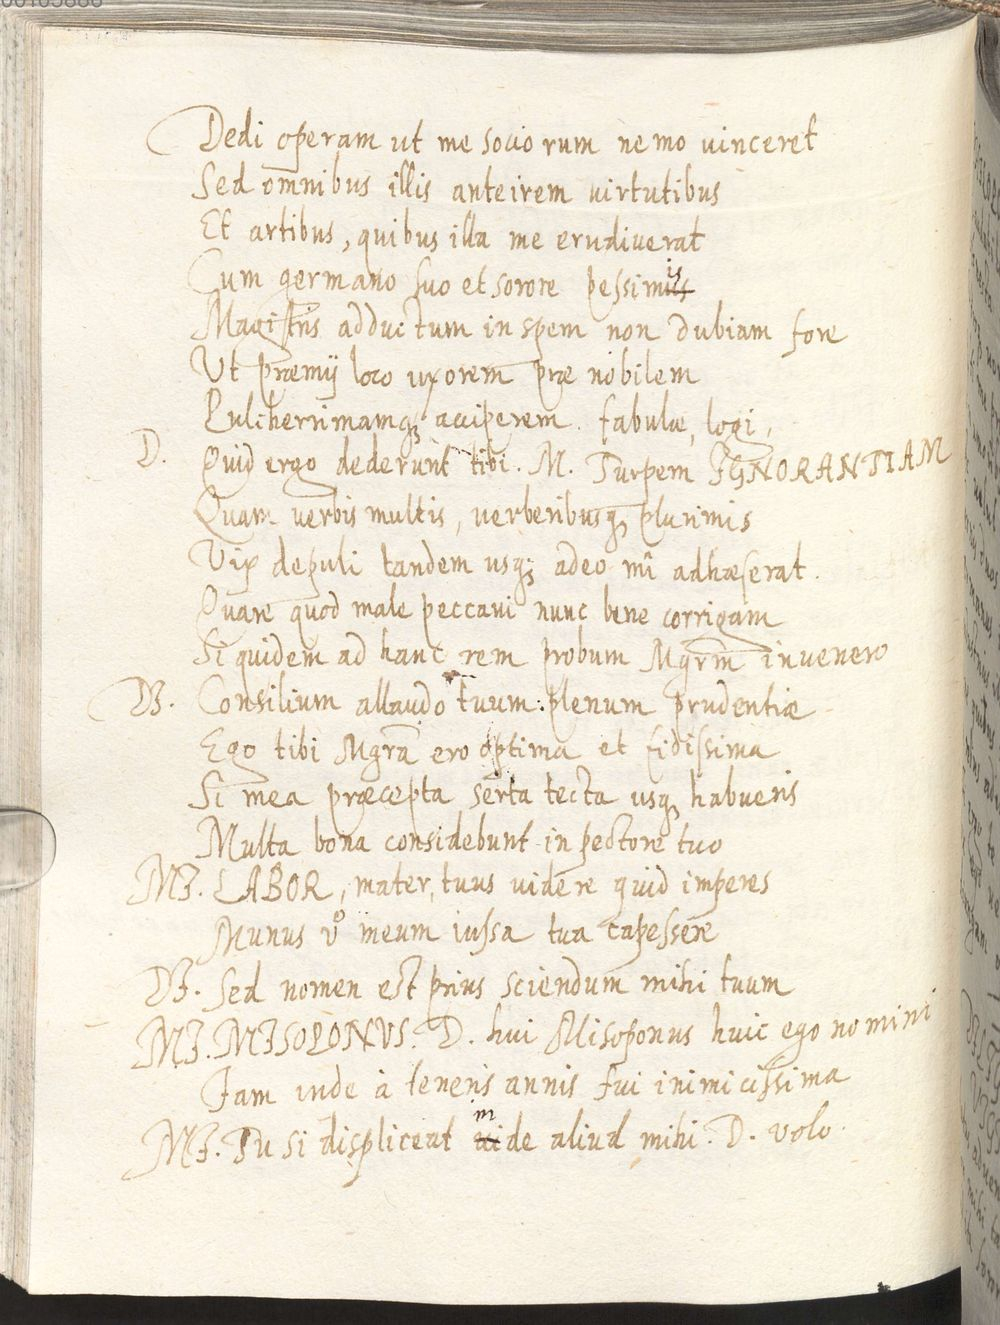 00105886
Dedi operam ut me sociorum nemo uinceret
Sed omnibus illis anteirem uirtutibus
Et artibus, quibus illa me erudiuerat
Cum germano suo et sorore pessimis
Magistris adductum in spem non dubiam fore
Ut præmij loco uxorem præ nobilem
Pulcherrimamq; acciperem. fabulæ, logi,
D. Quid ergo dederunt tibi. M. Turpem IGNORANTIAM
Quam uerbis multis, uerberibusq; plurimis
Vix depuli tandem usq; adeo mî adhæserat.
Quare quod male peccaui nunc bene corrigam
Si quidem ad hanc rem probum Mgrm̃ inuenero
DI. Consilium allaudo tuum: plenum prudentiæ
Ego tibi Mgrã ero optima et fidissima
Si mea præcepta serta tecta usq; habueris
Multa bona considebunt in pectore tuo
MI. LABOR, mater, tuus uidere quid imperes
Munus uº meum iussa tua capessere
DI. Sed nomen est prius sciendum mihi tuum
MI. MISOPONVS. D. hui Misoponus huic ego nomini
Iam inde à teneris annis fui inimicissima
MI. Tu si displiceat inde aliud mihi. D. volo.